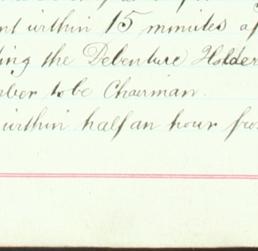 nt within 15 minutes a
ing the Debenture Holder
ber to be Chairman.
within half an hour fro